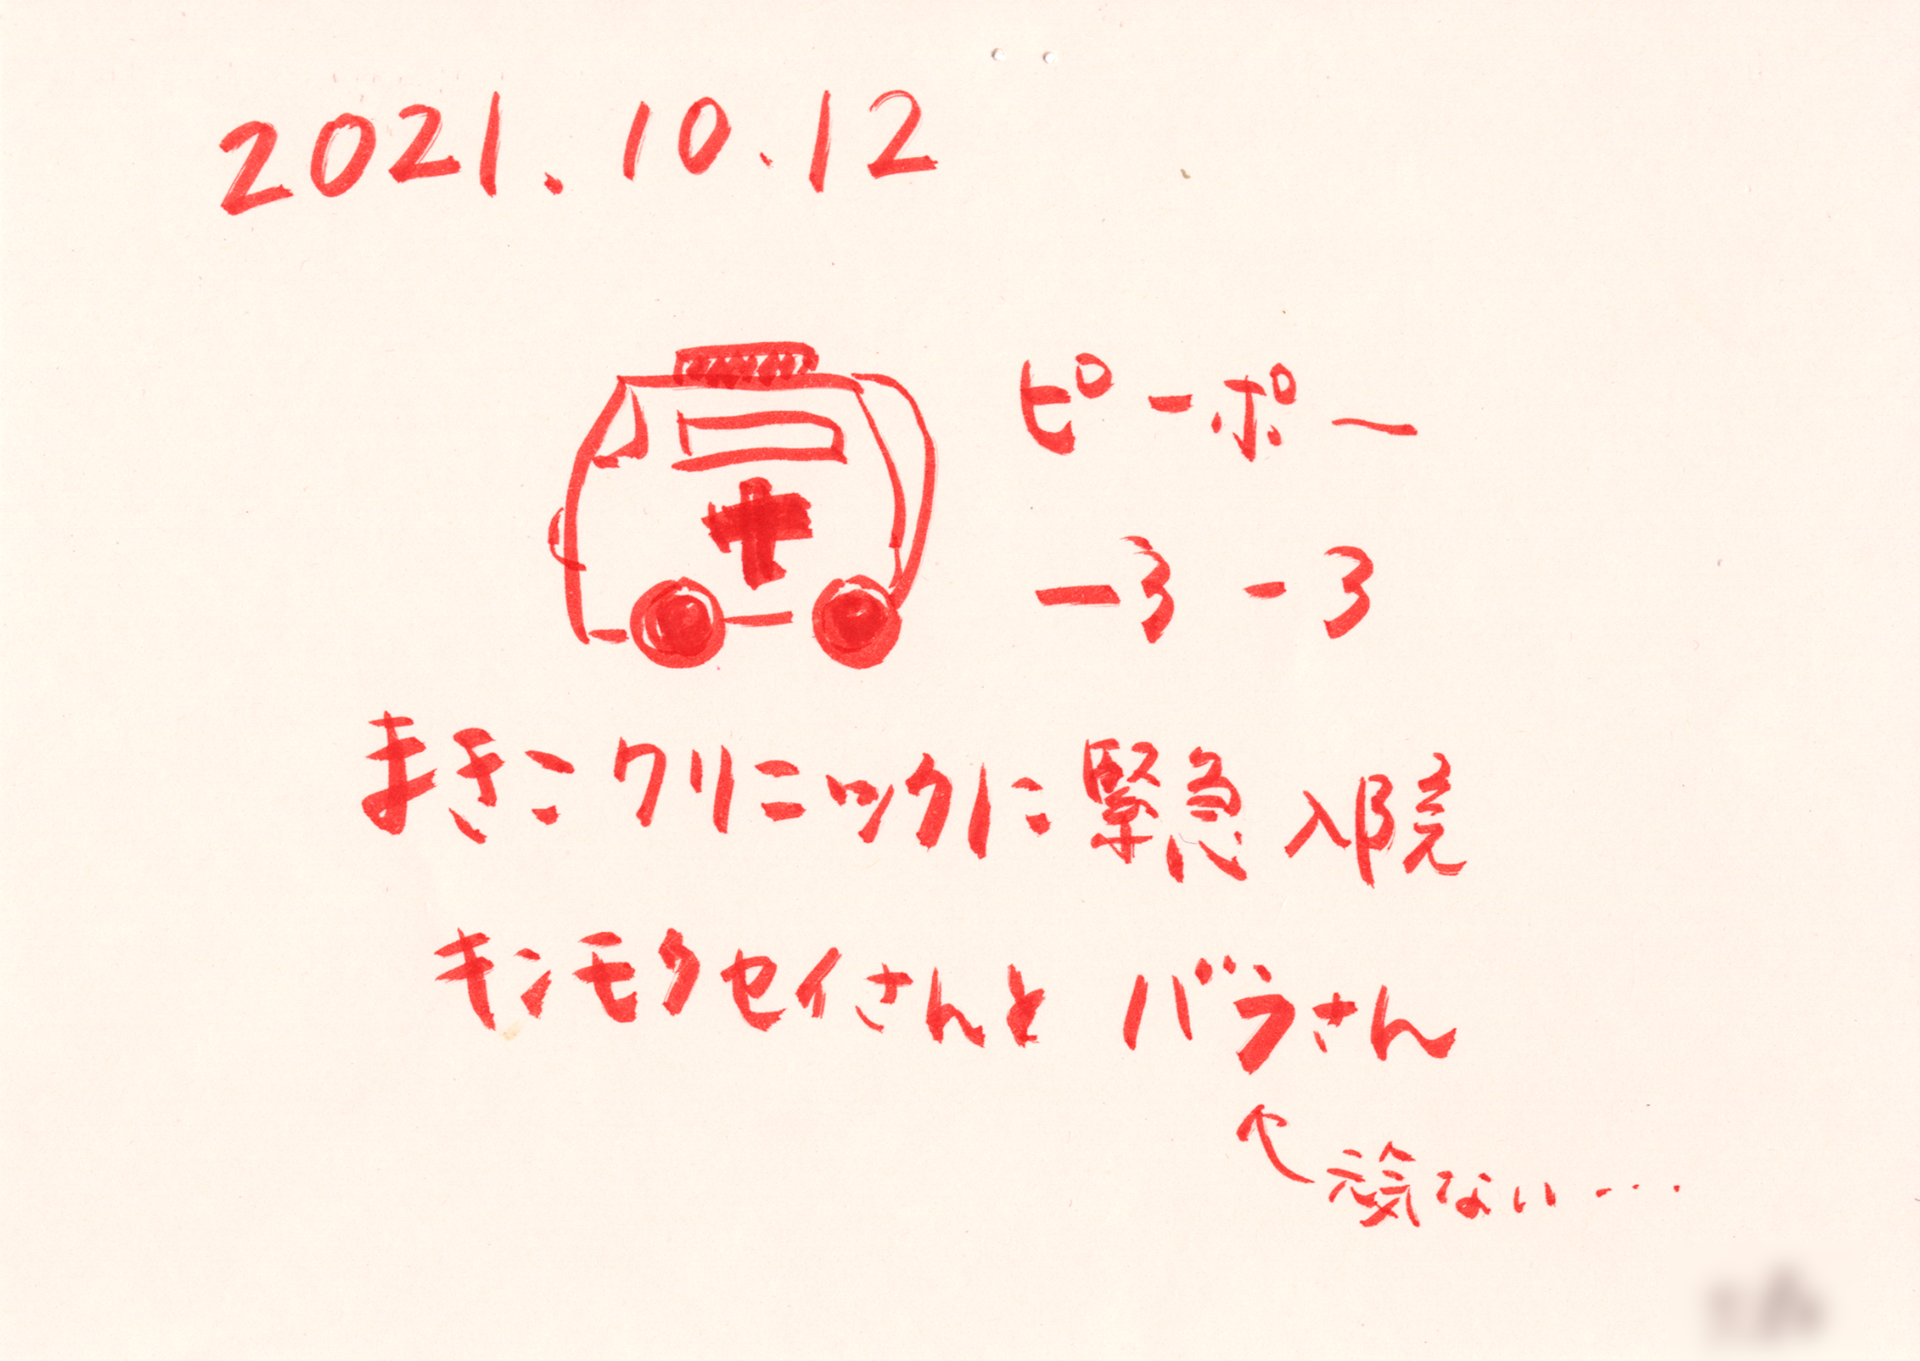 2021.10.12
ピーポー
ー3 ー3
まきこクリニックに緊急入院
キンモクセイさんと バラさん
元気ない…